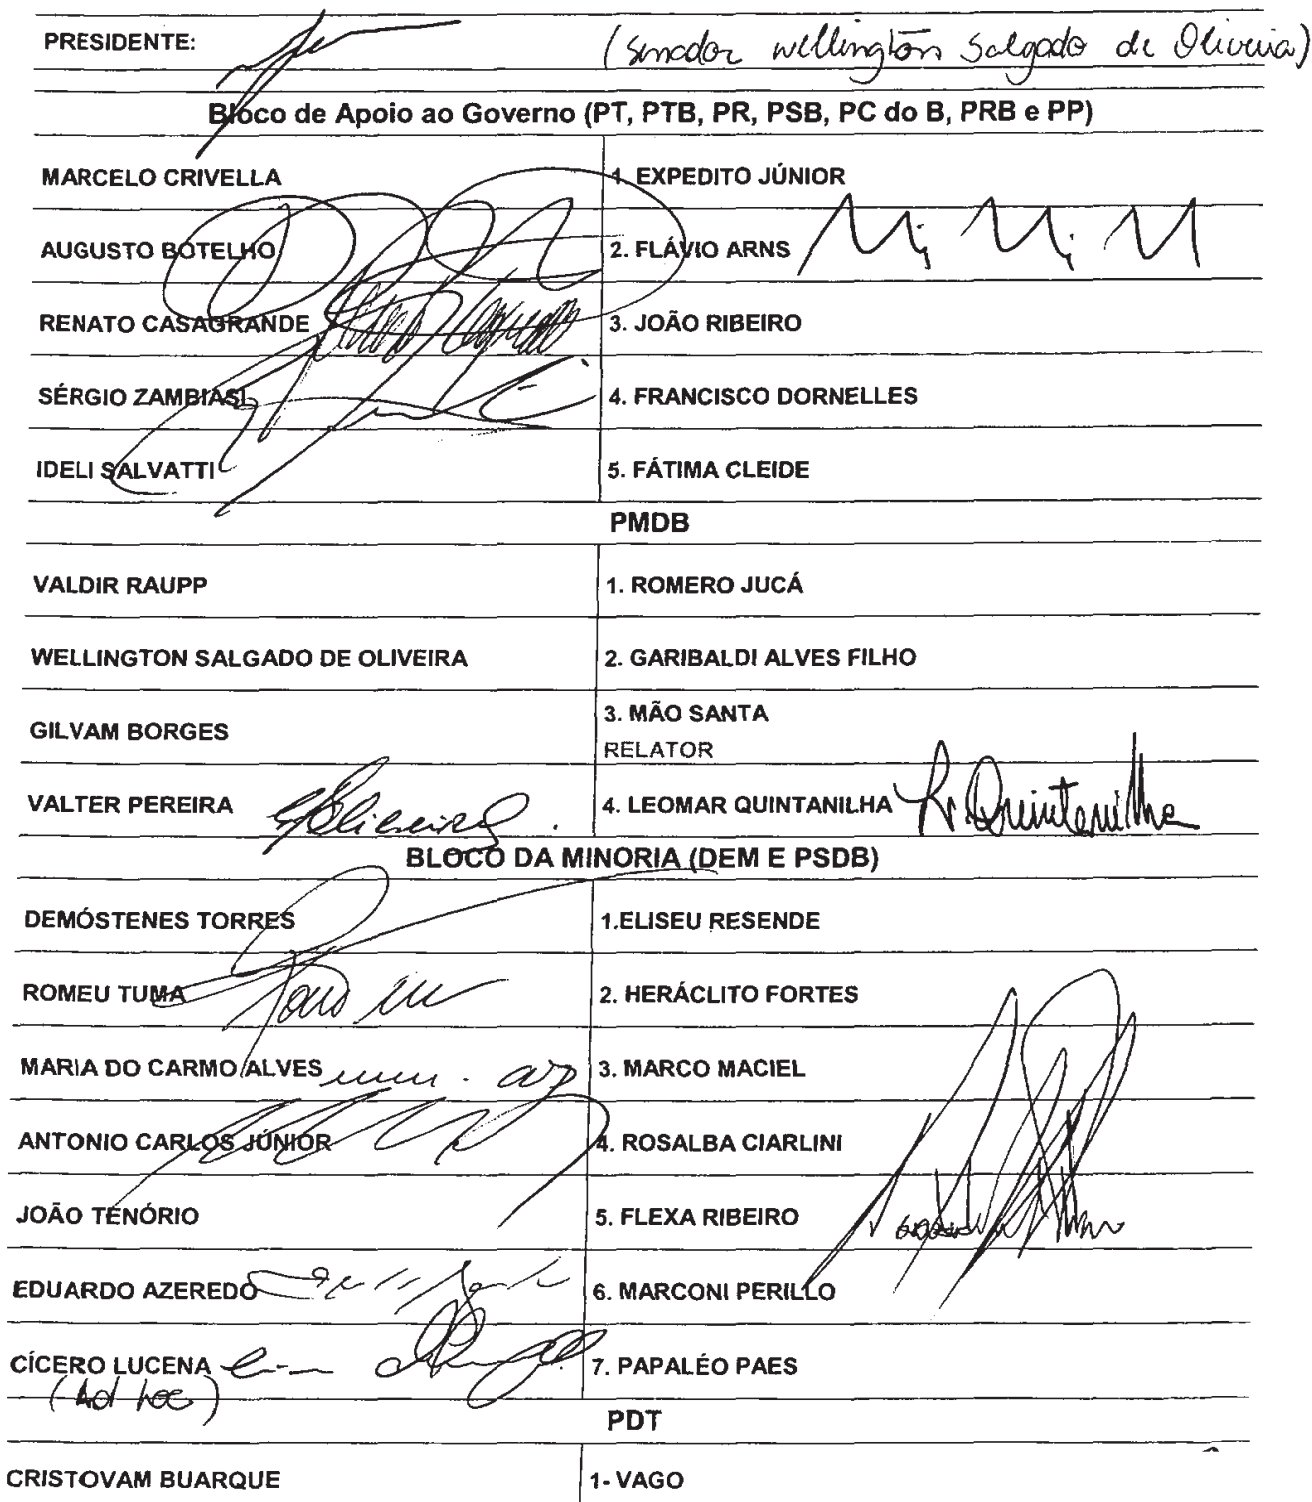 PRESIDENTE: (Senador Wellington Salgado de Oliveira)
Bloco de Apoio ao Governo (PT, PTB, PR, PSB, PC do B, PRB e PP)
MARCELO CRIVELLA 1. EXPEDITO JÚNIOR
AUGUSTO BOTELHO 2. FLÁVIO ARNS
RENATO CASAGRANDE 3. JOÃO RIBEIRO
SÉRGIO ZAMBIASI 4. FRANCISCO DORNELLES
IDELI SALVATTI 5. FÁTIMA CLEIDE
PMDB
VALDIR RAUPP 1. ROMERO JUCÁ
WELLINGTON SALGADO DE OLIVEIRA 2. GARIBALDI ALVES FILHO
GILVAM BORGES 3. MÃO SANTA
RELATOR
VALTER PEREIRA 4. LEOMAR QUINTANILHA L. Quintanilha
BLOCO DA MINORIA (DEM E PSDB)
DEMÓSTENES TORRES 1.ELISEU RESENDE
ROMEU TUMA 2. HERÁCLITO FORTES
MARIA DO CARMO ALVES 3. MARCO MACIEL
ANTONIO CARLOS JÚNIOR 4. ROSALBA CIARLINI
JOÃO TENÓRIO 5. FLEXA RIBEIRO
EDUARDO AZEREDO 6. MARCONI PERILLO
CÍCERO LUCENA 7. PAPALÉO PAES
(Ad hoc)
PDT
CRISTOVAM BUARQUE 1- VAGO